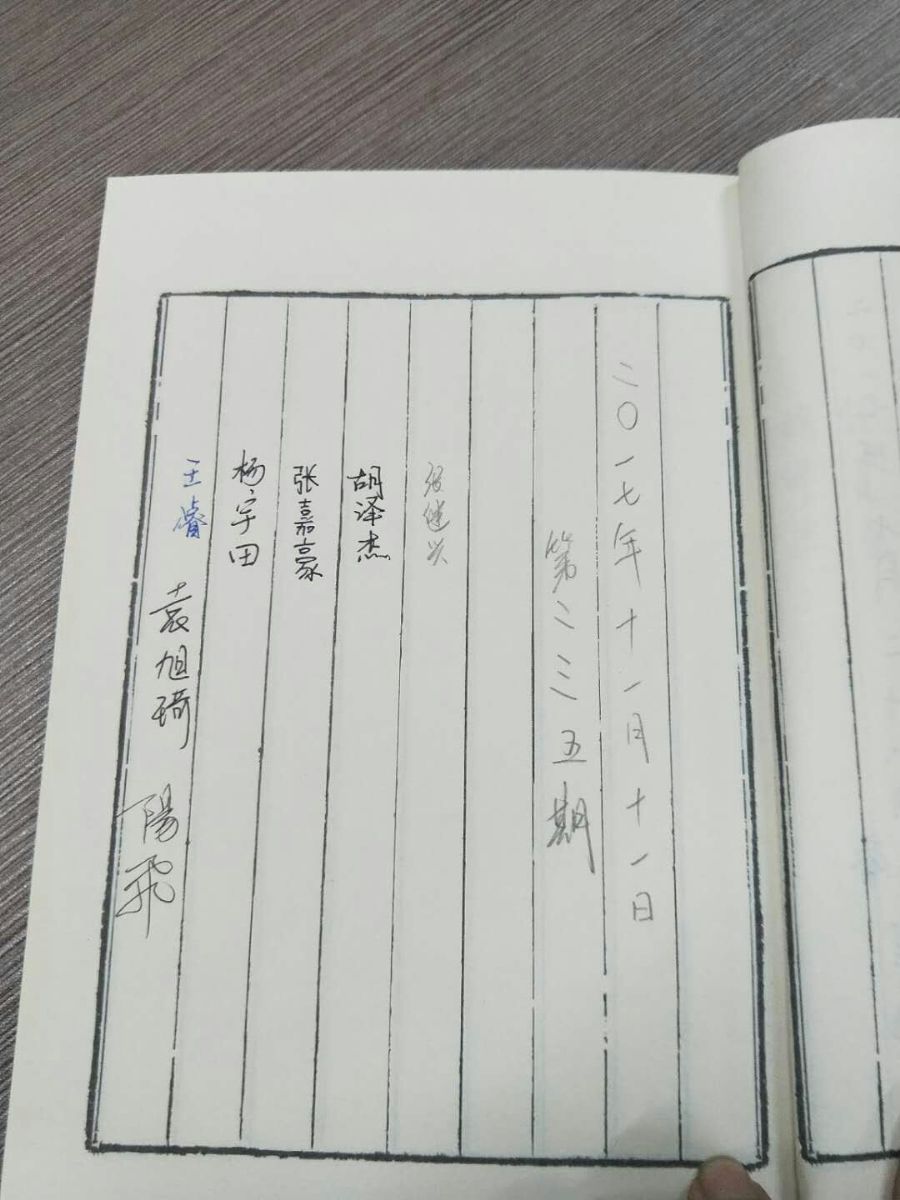 二〇一七年十一月十一日
第二三五期
张继兴
胡泽杰
张嘉豪
杨宇田
王睿
袁旭琦
陽飛